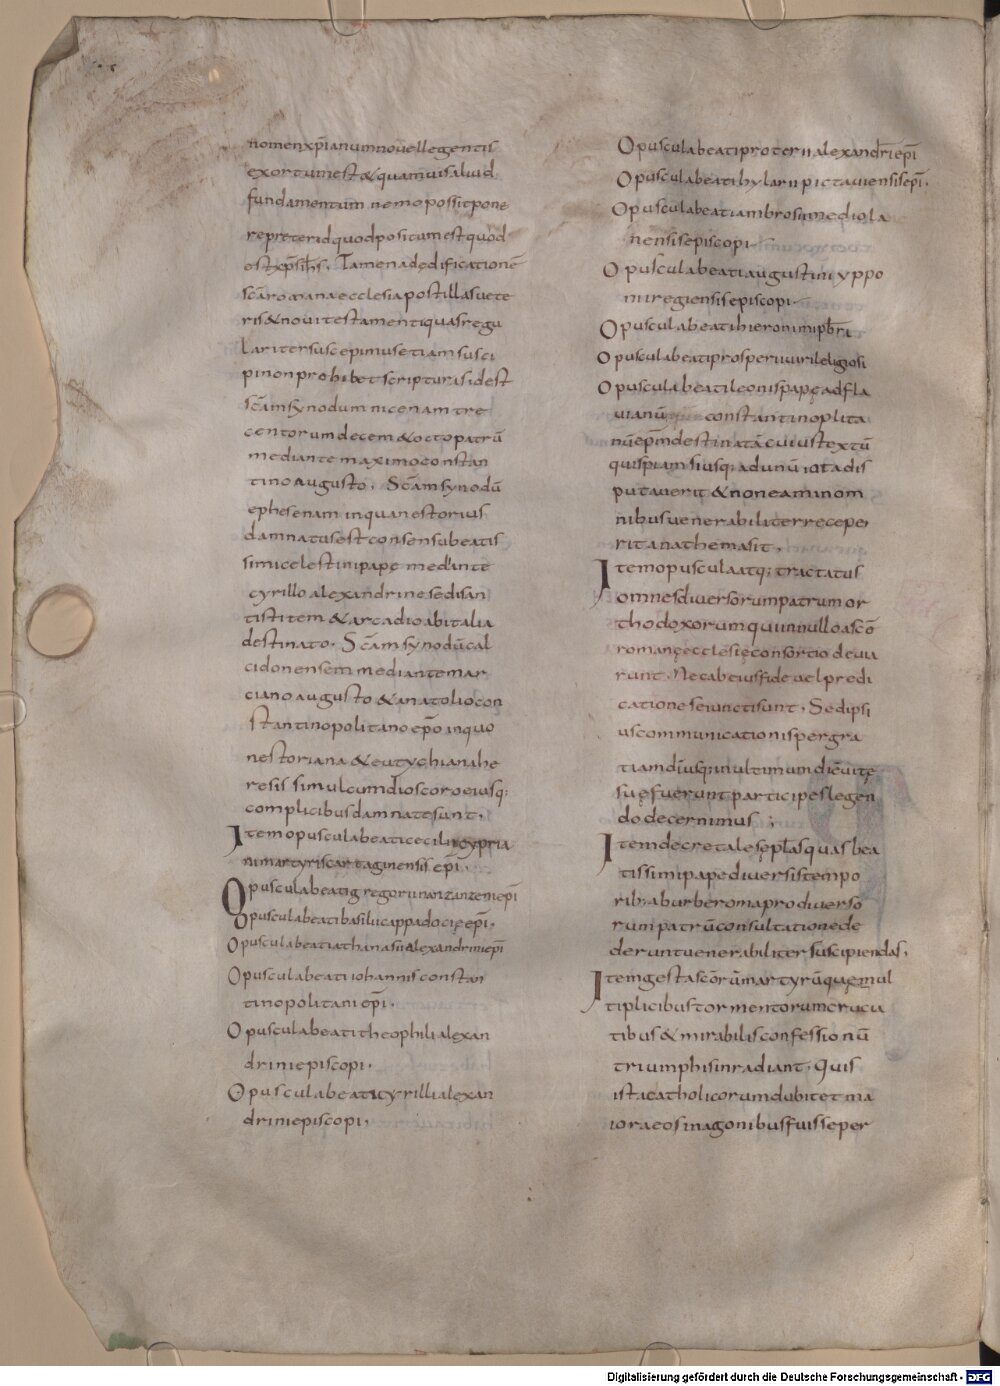 nomenxp̄ianumnouellegentis
exortumest&quamuisaliud
fundamentum nemopossitpone
repreteridquodpositumestquod
estxp̄sih̄s. Tamenadedificationē
sc̄aromanaecclesiapostillasuete
ris&nouitestamentiquasregu
laritersuscepimusetiamsusci
pinonprohibetscripturasidest
sc̄amsynodumnicenamtre
centorumdecem&octopatrū
mediantemaximoconstan
tinoaugusto. Sc̄amsynodū
ephesenaminquanestorius
damnatusestconsensubeatis
simicelestinipapę mediante
cyrilloalexandrinesedisan
tistitem&arcadioabitalia
destinato. Sc̄amsynodūcal
cidonensemmediantemar
cianoaugusto&anatoliocon
stantinopolitanoep̄oinquo
nestoriana&eutychianahe
resis simulcumdioscoroeiusq;
complicibusdamnatesunt.
Itemopusculabeaticeciliicypria
nimartyriscartaginensis ep̄i.
Opusculabeatigregoriinanzanzeniep̄i
Opusculabeatibasiliicappadocięep̄i.
Opusculabeatiathanasiialexandriniep̄i
Opusculabeatiiohannisconstan
tinopolitani ep̄i.
Opusculabeatitheophilialexan
driniepiscopi.
Opusculabeaticyrillialexan
driniepiscopi.
Opusculabeatiproteriialexandriep̄i
Opusculabeatihylariipictauiensisep̄i.
Opusculabeatiambrosiimediola
nensisepiscopi
Opusculabeatiaugustiniyppo
niregiensisepiscopi
Opusculabeatihieronimipb̄ri
Opusculabeatiprosperiuirireligiosi
Opusculabeatileonispapęadfla
uianū constantinoplita
nūep̄mdestinatācuiustextū
quispiamsiusq;adunūiotadis
putauerit&noneaminom
nibusuenerabiliterrecepe
ritanathemasit.
Itemopusculaatq;tractatus
omnesdiuersorumpatrumor
thodoxorumquiinnulloascō
romanęecclesięconsortiodeuia
runt. Necabeiusfideuelpredi
catione seiunctisunt. Sedipsi
uscommunicationispergra
tiamdīusq;inultimumdiēuitę
suęfueruntparticipeslegen
dodecernimus;
Itemdecretalesepl̄asquasbea
tissimipapediuersistempo
rib;aburberomaprodiuerso
rumpatrūconsultationede
deruntuenerabilitersuscipiendas.
Itemgestasc̄orūmartyrūquęmul
tiplicibustormentorumcrucia
tibus&mirabilisconfessionū
triumphisinradiant. Quis
istacatholicorumdubitetma
ioraeosinagonibusfuisseper
Digitalisierung gefördert durch die Deutsche Forschungsgemeinschaft - DFG